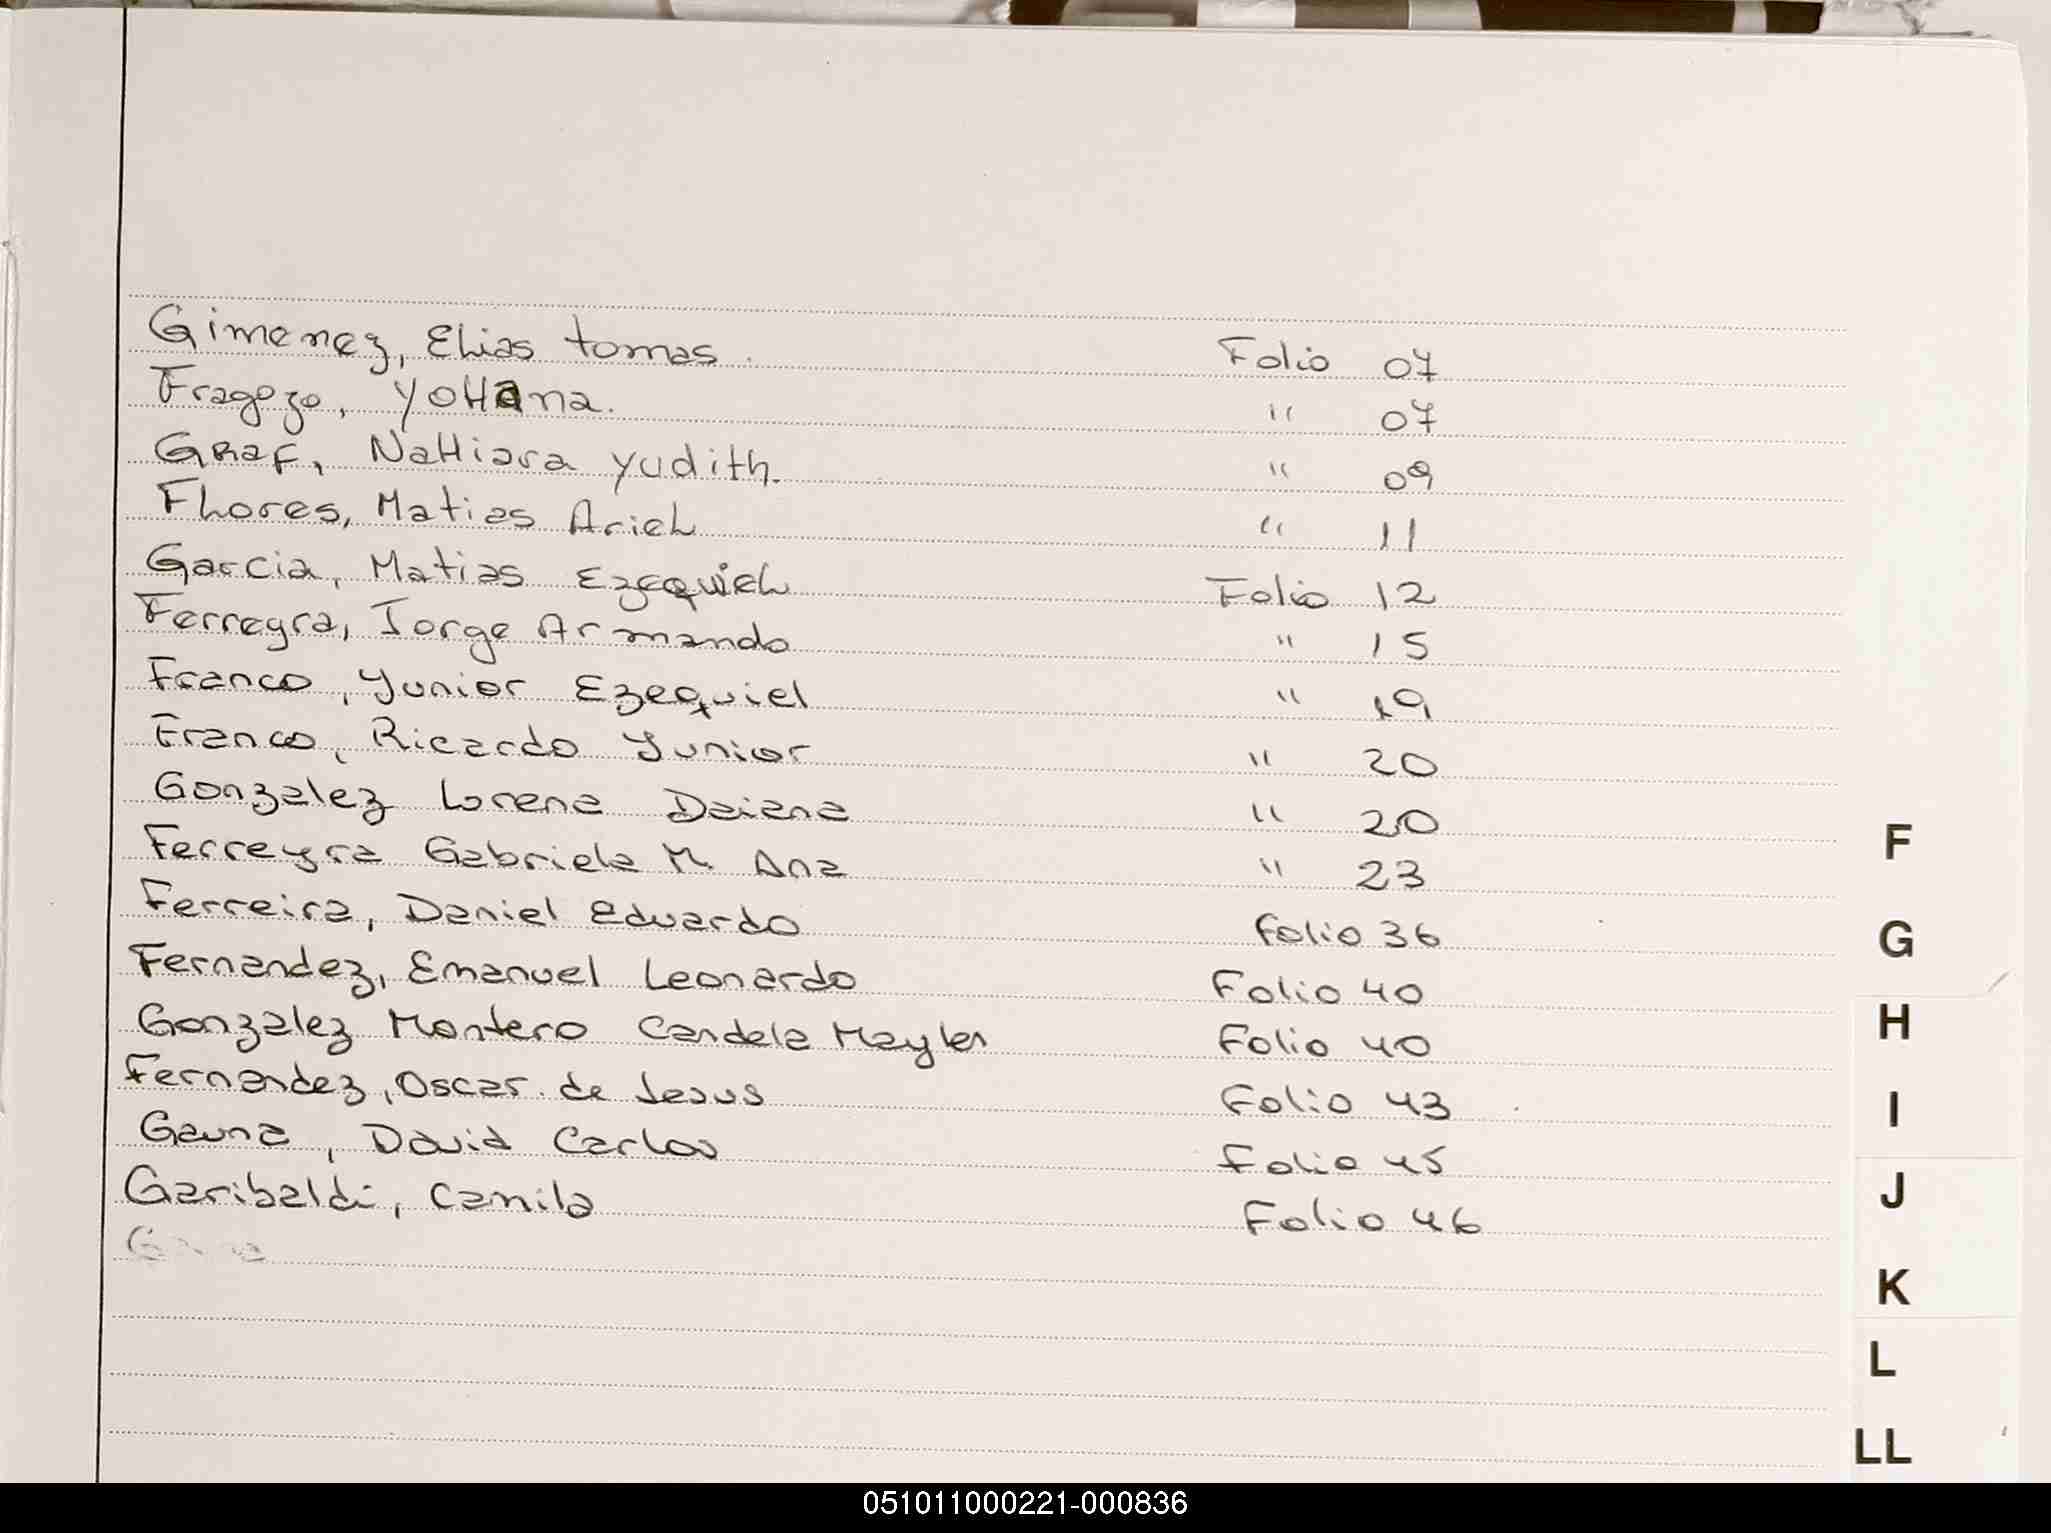 Gimenez, Elias tomas. Folio 07
Fragozo, YoHana. " 07
GRaF, NaHiara Yudith. " 09
Flores, Matias Ariel " 11
Garcia, Matias Ezequiel Folio 12
Ferreyra, Jorge Armando " 15
Franco, Yunior Ezequiel " 19
Franco, Ricardo Yunior " 20
Gonzalez Lorena Daiana " 20
Ferreyra Gabriela M. Ana " 23
Ferreira, Daniel Eduardo Folio 36
Fernandez, Emanuel Leonardo Folio 40
Gonzalez Montero Candela Maylen Folio 40
Fernandez, Oscar de Jesus Folio 43
Gauna, David Carlos Folio 45
Garibaldi, Camila Folio 46
F
G
H
I
J
K
L
LL
051011000221-000836